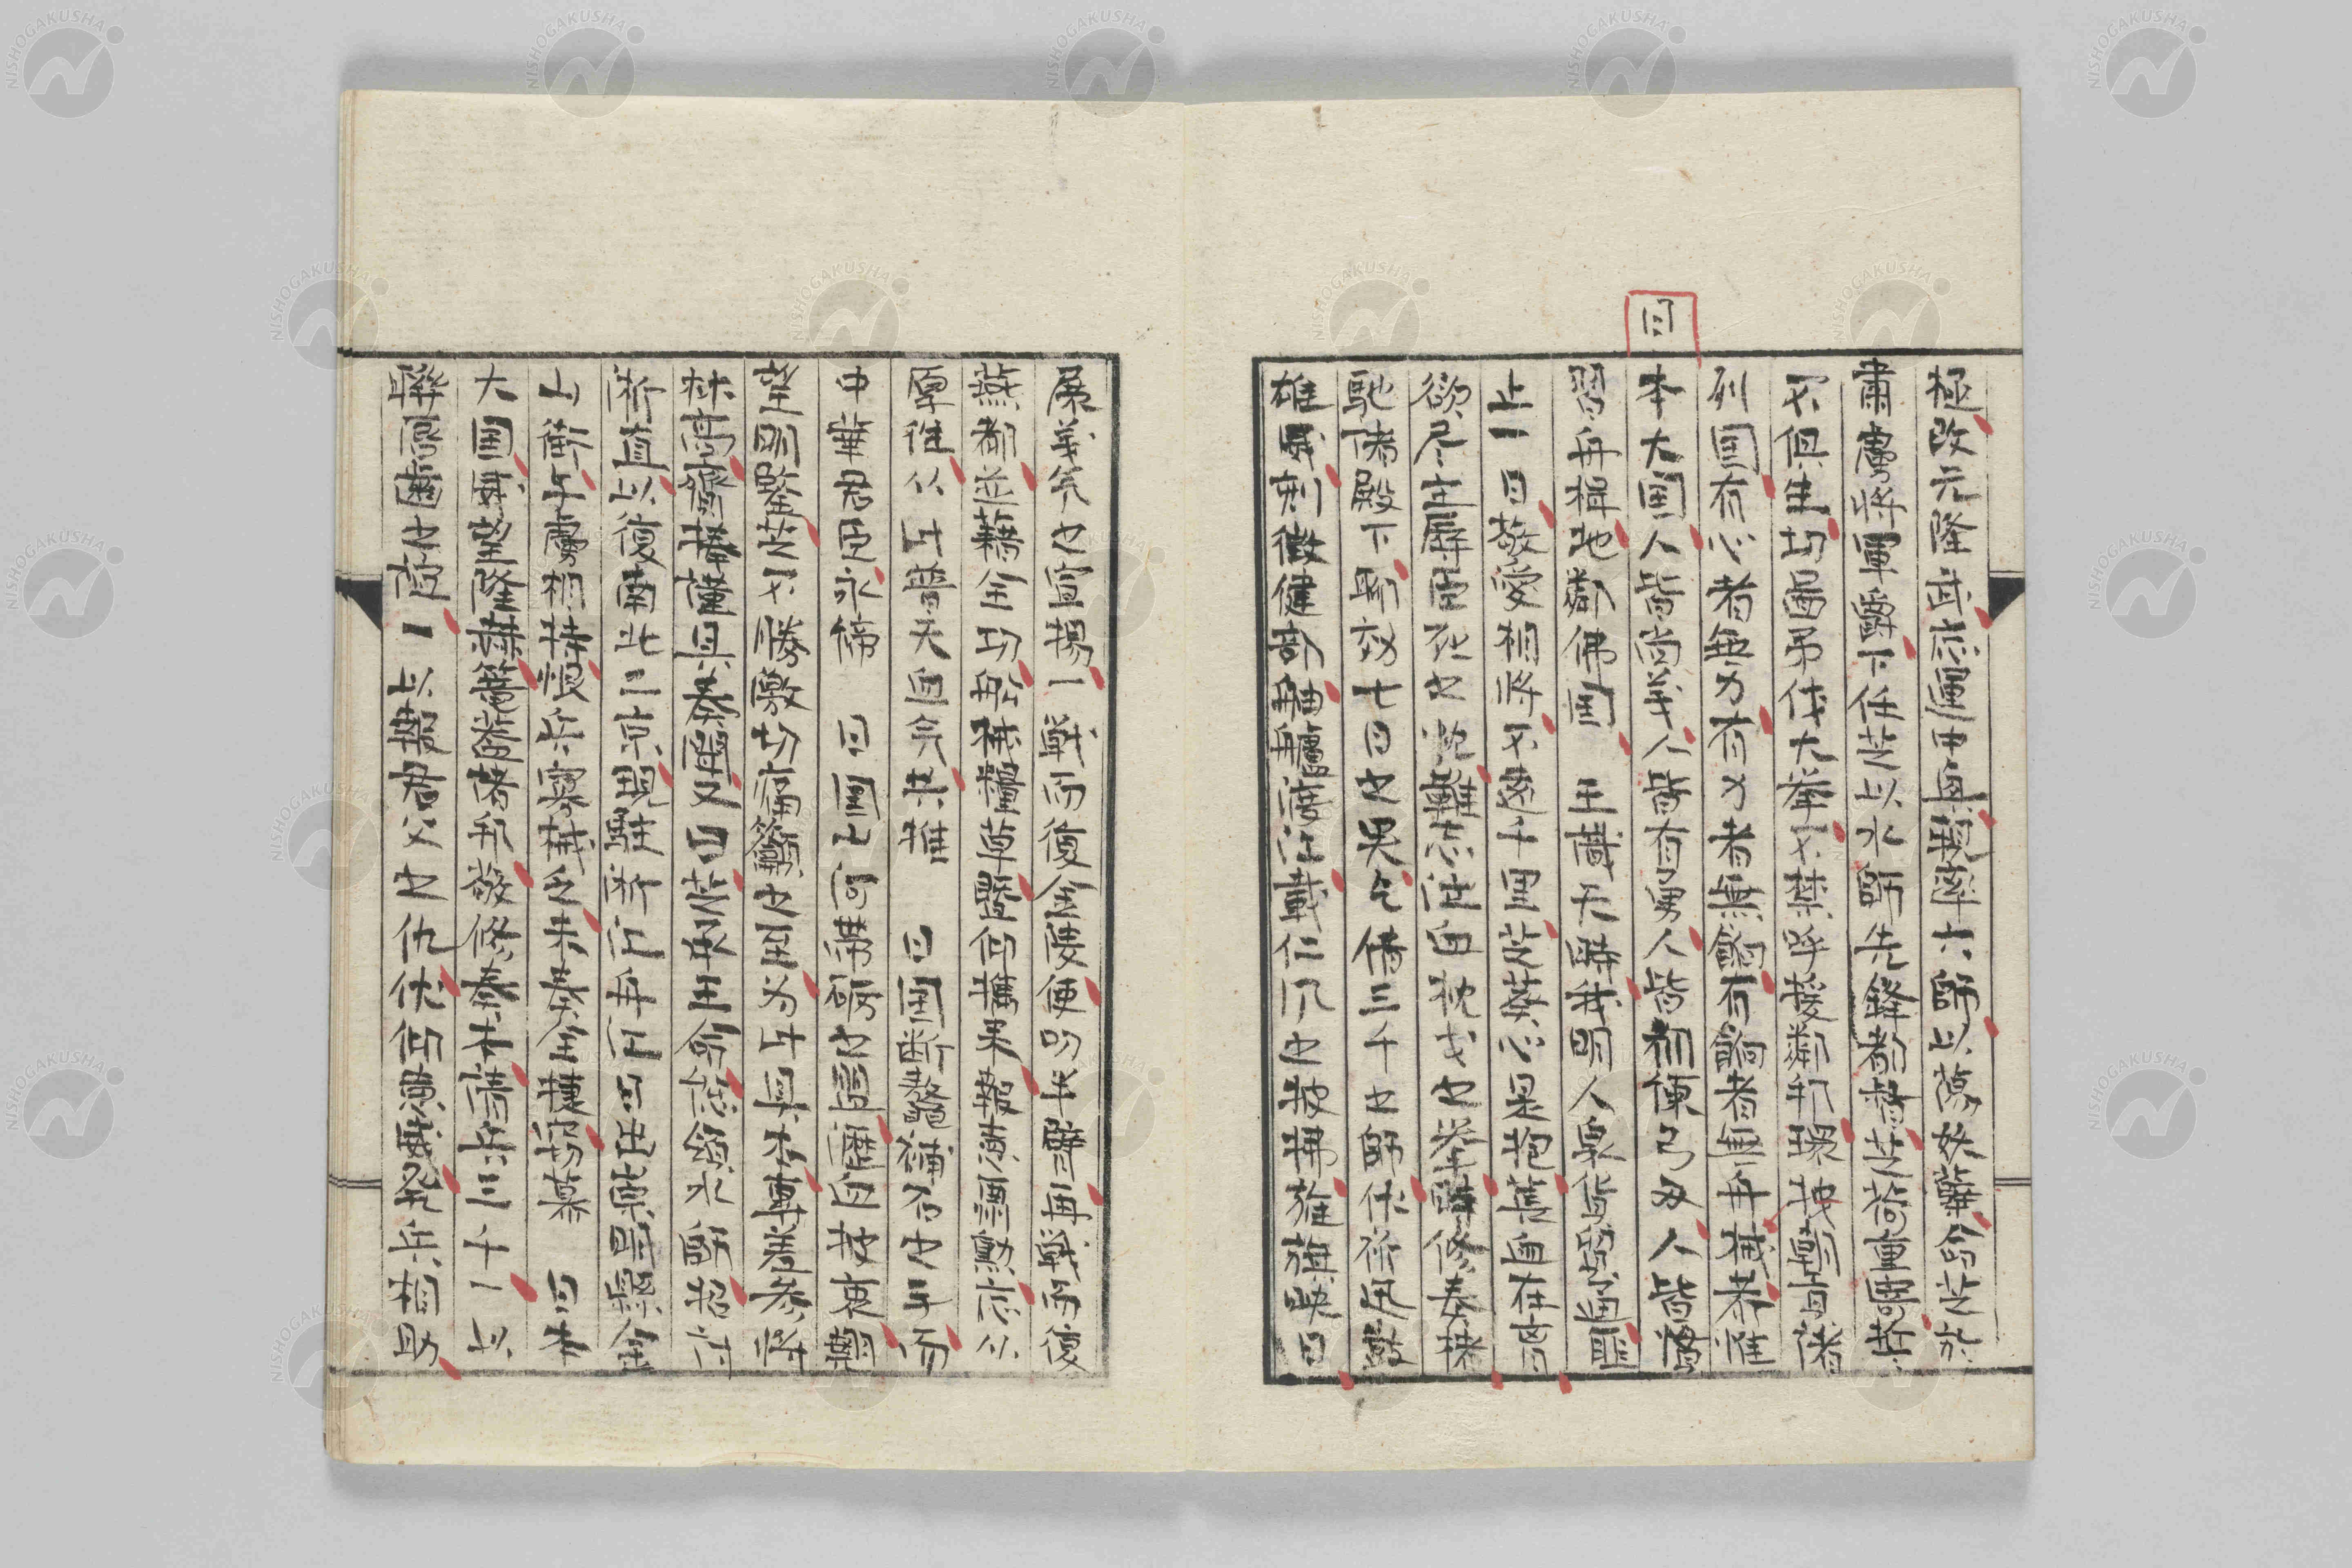 日
極改元隆武應運中興親率六師以蕩妖孽命芝於
肅虜將軍麾下任芝以水師先鋒都督芝荷重寄
不但生切啚吊伐大挙不禁呼援鄰邦環披朝貢諸
列国有心者無力有力者無餉有餉者無舟楫者惟
本大国人皆尚義人皆有勇人皆初便弓刀人皆慣
習舟楫地鄰佛国 王識天時我明人衆貨貿通匪
止一日敬愛相將不遠千里芝葵心是抱蓄血在胸
欲尽主辱臣死之忱難忘泣血枕戈之挙特修奏楮
馳諸殿下聊効七日之哭乞借三千之師伏祈迅鼓
雄威刻徴健部舳艫渡江載仁風之披拂旌旗映日
展義気之宣揚一戦而復金陵便叨半壁再戦而復
燕都並藉全功船械糧草暨仰攜果報恵酬勲応以
厚往從此普天血気共推 日国断鰲補石之手而
中華君臣永締 日国山河帯礪之盟瀝血披衷翹
望明鑒芝不勝激切痛籲之至為此具本專差參将
林高齎捧謹具奏聞又曰芝奉王命總領水師招討
浙直以復南北二京現駐浙江舟江日出東明縣金
山衛与虜相持恨兵寡械乏未奏全捷窃慕 日本
大国威望隆赫諸邦敬修奏本請兵三千一以
聯唇歯之誼一以報君父之仇伏仰憲威発兵相助